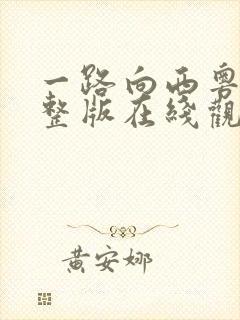 一路向西粤
整版在綫觀
黄安娜